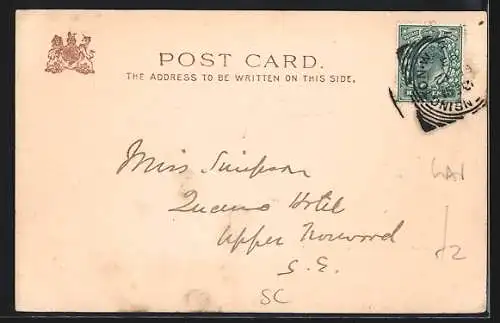 POST CARD.
THE ADDRESS TO BE WRITTEN ON THIS SIDE.
Miss Simpson
Queens Hotel
Upper Norwood
S.E.
SC